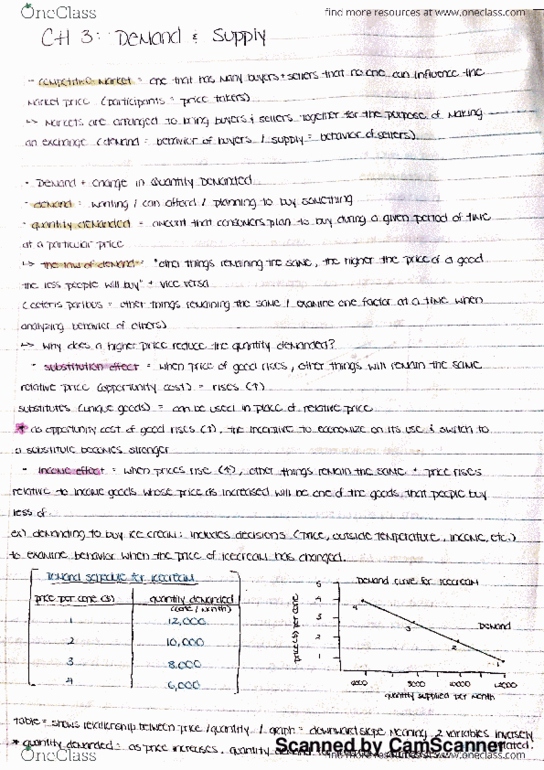 OneClass
find more resources at www.oneclass.com
CH 3: Demand & Supply
- competitive market = one that has many buyers + sellers that no one can influence the
market price (participants = price takers)
↳ markets are arranged to bring buyers & sellers together for the purpose of making
an exchange (demand = behavior of buyers / supply = behavior of sellers)
- Demand + change in Quantity Demanded
- demand : wanting / can afford / planning to buy something
- quantity demanded = amount that consumers plan to buy during a given period of time
at a particular price
↳ the law of demand - "other things remaining the same, the higher the price of a good
the less people will buy" + vice versa
(ceteris paribus = other things remaining the same / examine one factor at a time when
analyzing behavior of others)
↳ why does a higher price reduce the quantity demanded?
- substitution effect = when price of good rises, other things will remain the same
relative price (opportunity cost) = rises (↑)
substitutes (unique goods) = can be used in place of relative price
* as opportunity cost of good rises (↑), the incentive to economize on its use & switch to
a substitute becomes stronger
- income effect = when prices rise (↑), other things remain the same + price rises
relative to income goods whose price as increased will be one of the goods that people buy
less of.
ex) demanding to buy ice cream: includes decisions (price, outside temperature, income, etc.)
to examine behavior when the price of icecream has changed.
Demand schedule for icecream
price per cone ($) quantity demanded
(cone / month)
1 12,000
2 10,000
3 8,000
4 6,000
Demand curve for icecream
price ($) per cone
5
4
3
2
1
4
3
2
1
Demand
6000 8000 10000 12000
quantity supplied per month
Table = shows relationship between price / quantity / graph = downward slope meaning 2 variables inversely
related.
* quantity demanded = as price increases, quantity demanded
Scanned by CamScanner
OneClass
find more resources at www.oneclass.com